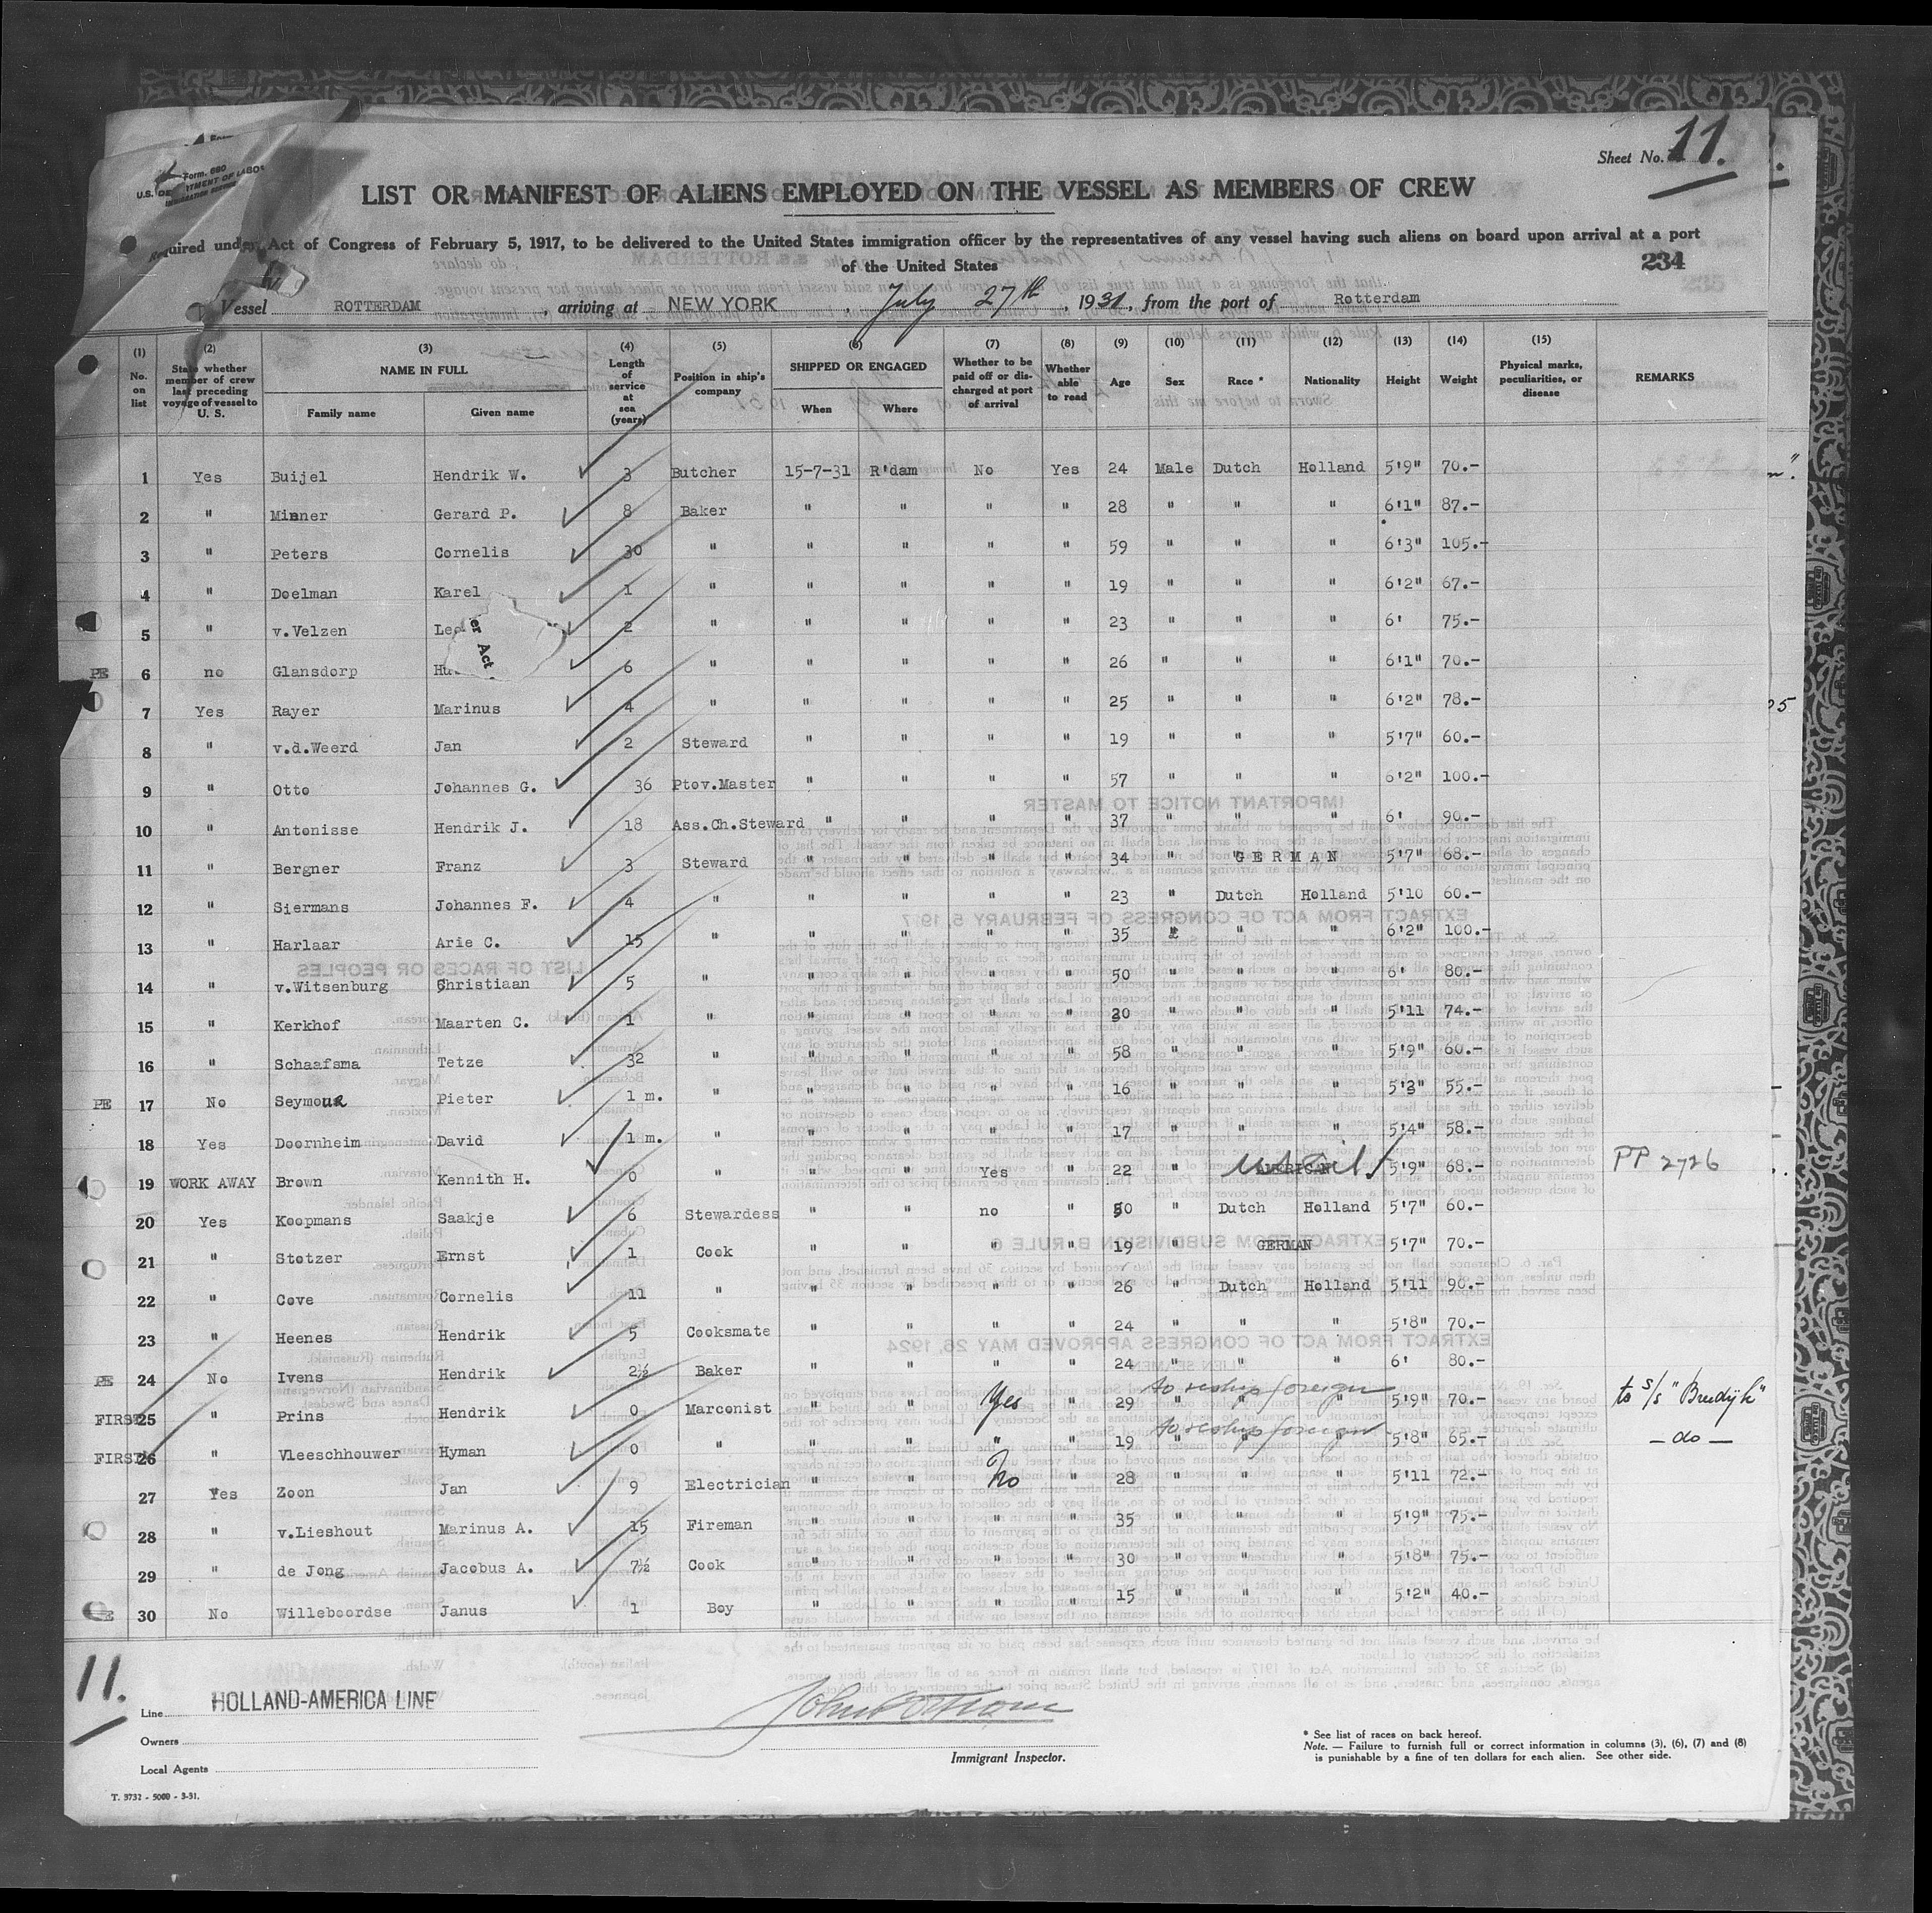 Sheet No. 11.
Form. 680
U.S. DE TMENT OF LABOR
IMMIGRATION SERVICE
LIST OR MANIFEST OF ALIENS EMPLOYED ON THE VESSEL AS MEMBERS OF CREW
Required under Act of Congress of February 5, 1917, to be delivered to the United States immigration officer by the representatives of any vessel having such aliens on board upon arrival at a port
of the United States
234
Vessel ROTTERDAM, arriving at NEW YORK, July 27th, 1931, from the port of Rotterdam
(1) No. on list (2) State whether member of crew last preceding voyage of vessel to U. S. (3) NAME IN FULL Family name Given name (4) Length of service at sea (years) (5) Position in ship's company (6) SHIPPED OR ENGAGED When Where (7) Whether to be paid off or discharged at port of arrival (8) Whether able to read (9) Age (10) Sex (11) Race * (12) Nationality (13) Height (14) Weight (15) Physical marks, peculiarities, or disease REMARKS
1 Yes Buijel Hendrik W. 3 Butcher 15-7-31 R'dam No Yes 24 Male Dutch Holland 5'9" 70.-
2 " Minner Gerard P. 8 Baker " " " " 28 " " " 6'1" 87.-
3 " Peters Cornelis 30 " " " " " 59 " " " 6'3" 105.-
4 " Doelman Karel 1 " " " " " 19 " " " 6'2" 67.-
5 " v.Velzen 2 " " " " " 23 " " " 6' 75.-
er Act
PE 6 no Glansdorp 6 " " " " " 26 " " " 6'1" 70.-
7 Yes Rayer Marinus 4 " " " " " 25 " " " 6'2" 78.-
8 " v.d.Weerd Jan 2 Steward " " " " 19 " " " 5'7" 60.-
9 " Otto Johannes G. 36 Ptov.Master " " " " 57 " " " 6'2" 100.-
10 " Antonisse Hendrik J. 18 Ass.Ch.Steward " " " " 37 " " " 6' 90.-
11 " Bergner Franz 3 Steward " " " " 34 " GERMAN 5'7" 68.-
12 " Siermans Johannes F. 4 " " " " " 23 " Dutch Holland 5'10 60.-
13 " Harlaar Arie C. 15 " " " " " 35 " " " 6'2" 100.-
14 " v.Witsenburg Christiaan 5 " " " " " 50 " " " 6' 80.-
15 " Kerkhof Maarten C. 1 " " " " " 20 " " " 5'11 74.-
16 " Schaafsma Tetze 32 " " " " " 58 " " " 5'9" 60.-
PE 17 No Seymour Pieter 1 m. " " " " " 16 " " " 5'3" 55.-
18 Yes Doornheim David 1 m. " " " " " 17 " " " 5'4" 58.-
19 WORK AWAY Brown Kennith H. 0 " " " Yes " 22 " AMERICAN 5'9" 68.- PP 2726
20 Yes Koopmans Saakje 6 Stewardess " " no " 50 " Dutch Holland 5'7" 60.-
21 " Stotzer Ernst 1 Cook " " " " 19 " GERMAN 5'7" 70.-
22 " Cove Cornelis 11 " " " " " 26 " Dutch Holland 5'11 90.-
23 " Heenes Hendrik 5 Cooksmate " " " " 24 " " " 5'8" 70.-
PE 24 No Ivens Hendrik 2½ Baker " " " " 24 " " " 6' 80.-
FIRST 25 " Prins Hendrik 0 Marconist " " Yes " 29 to reship foreign " " " 5'9" 70.- to s/s "Breedijk"
FIRST 26 " Vleeschhouwer Hyman 0 " " " " " 19 to reship foreign " " 5'8" 65.- — do —
27 Yes Zoon Jan 9 Electrician " " No " 28 " " " 5'11 72.-
28 " v.Lieshout Marinus A. 15 Fireman " " " " 35 " " " 5'9" 75.-
29 " de Jong Jacobus A. 7½ Cook " " " " 30 " " " 5'8" 75.-
30 No Willeboordse Janus 1 Boy " " " " 15 " " " 5'2" 40.-
11.
Line HOLLAND-AMERICA LINE
Owners
Local Agents
Immigrant Inspector.
* See list of races on back hereof.
Note. — Failure to furnish full or correct information in columns (3), (6), (7) and (8)
is punishable by a fine of ten dollars for each alien. See other side.
T. 3732 - 5000 - 3-31.